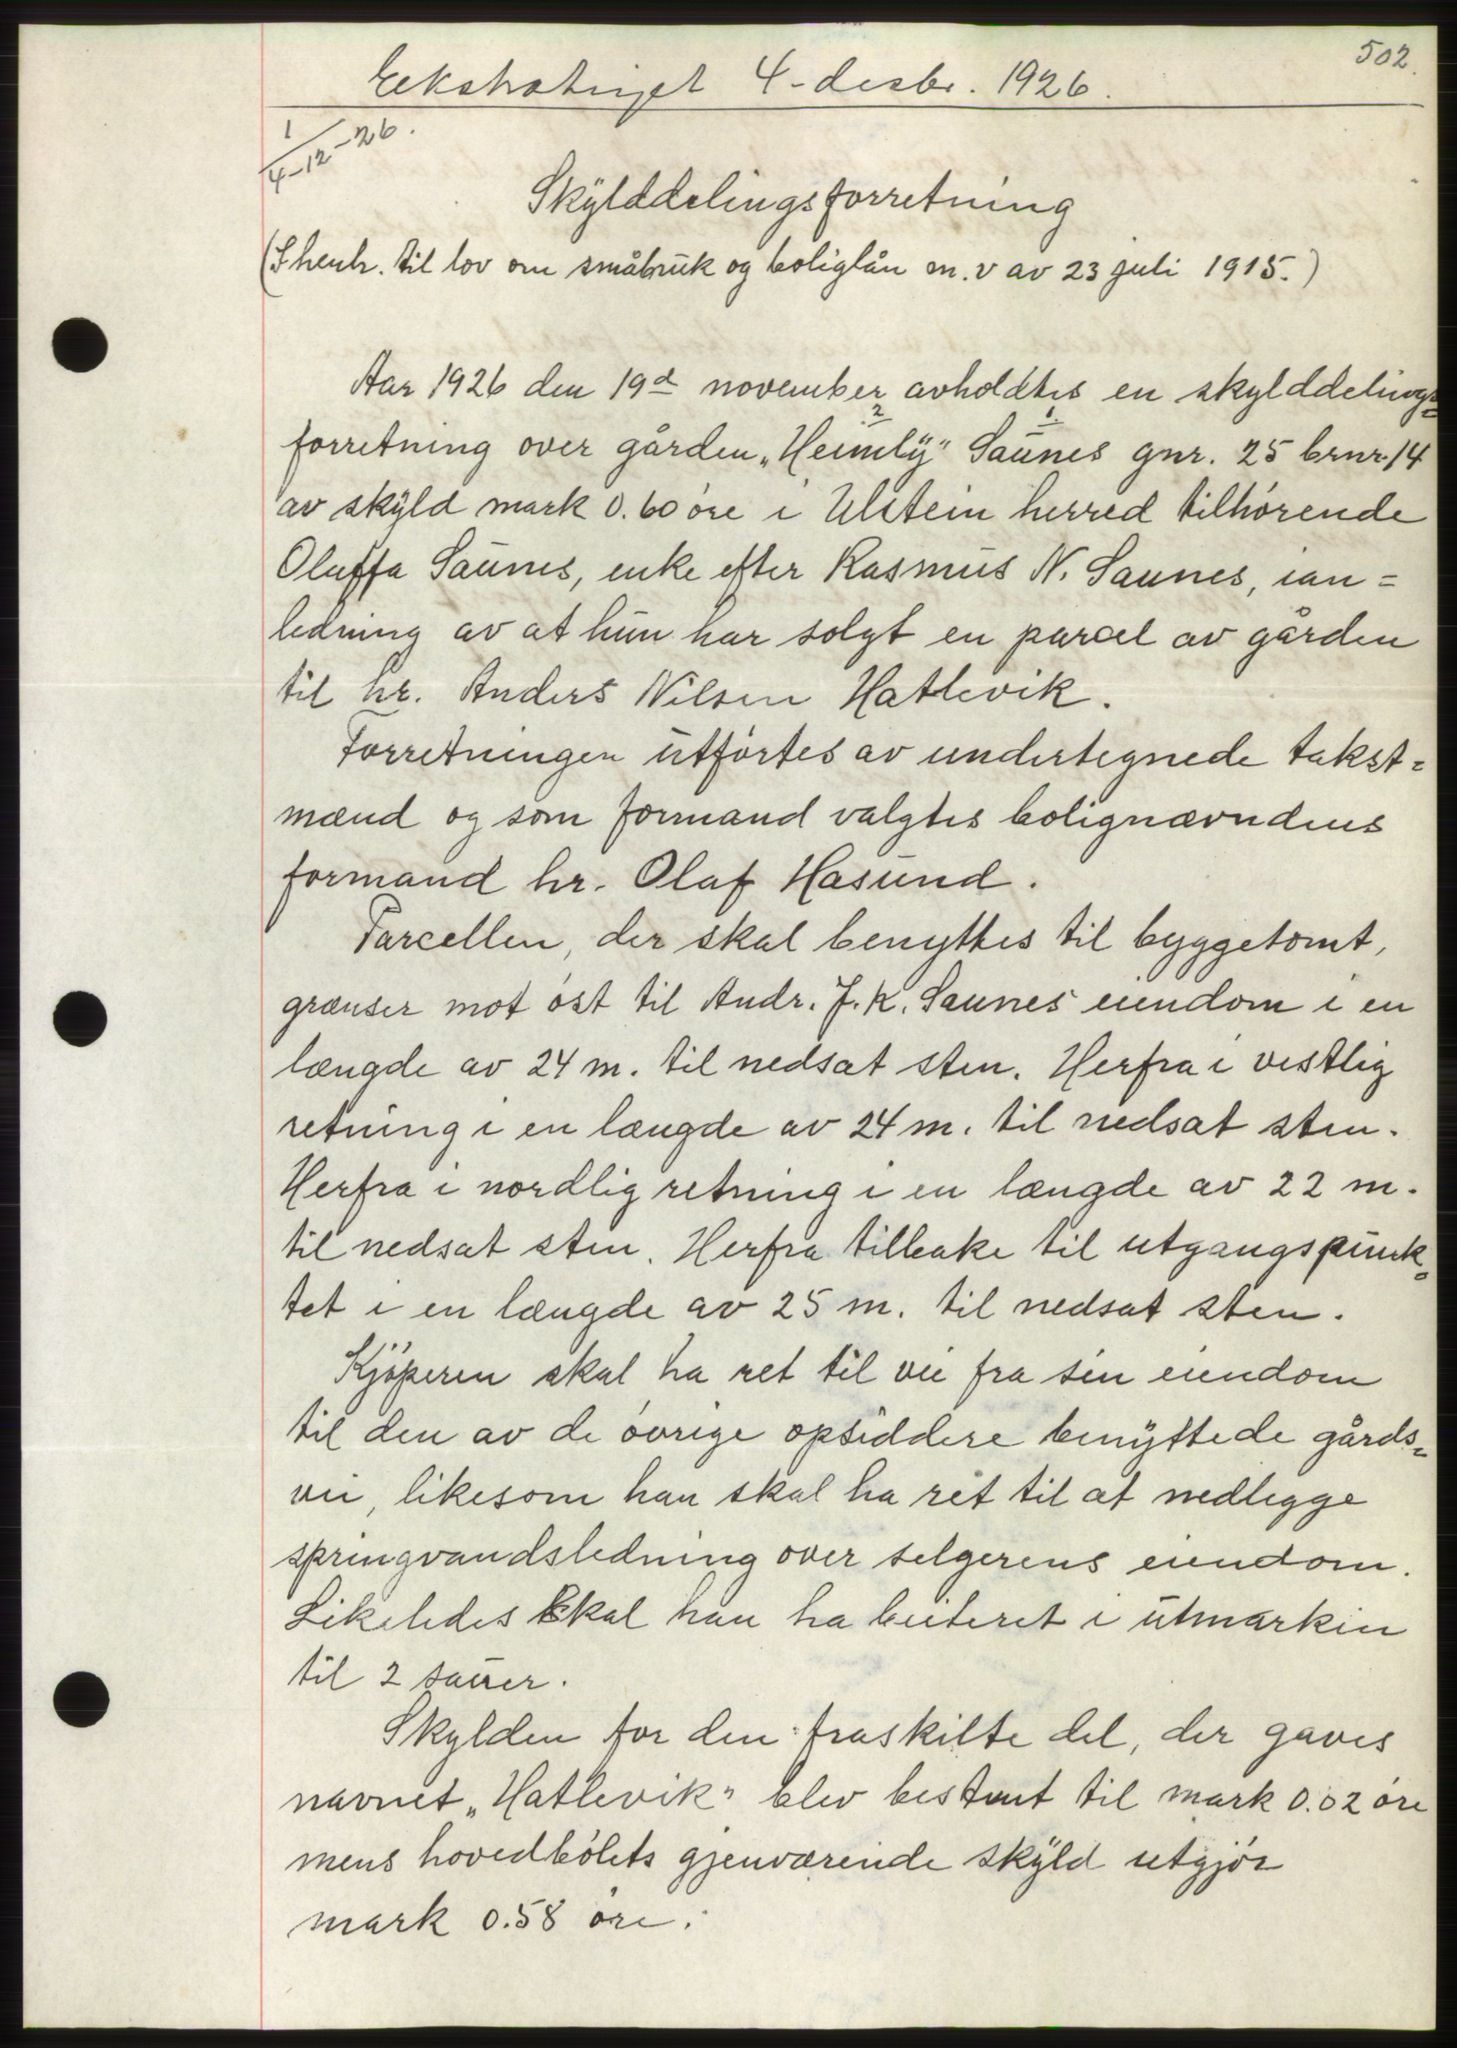 502.
Ekstratinget 4-desbr. 1926.
1
4-12-26.
Skylddelingsforretning
(I henh. til lov om småbruk og boliglån m.v av 23 juli 1915.)
Aar 1926 den 19d november avholdtes en skylddelings=
2 1.
forretning over gården „Heimly" Saunes gnr. 25 brnr. 14
av skyld mark 0.60 øre i Ulstein herred tilhørende
Oluffa Saunes, enke efter Rasmus N. Saunes, ian=
ledning av at hun har solgt en parcel av gården
til hr. Anders Nilsen Hatlevik.
Forretningen utførtes av undertegnede takst=
mænd og som formand valgtes bolignævndens
formand hr. Olaf Hasund.
Parcellen, der skal benyttes til byggetomt,
grænser mot øst til Andr. J. K. Saunes eiendom i en
længde av 24 m. til nedsat sten. Herfra i vestlig
retning i en længde av 24 m. til nedsat sten.
Herfra i nordlig retning i en længde av 22 m.
til nedsat sten. Herfra tilbake til utgangspunk=
tet i en længde av 25 m. til nedsat sten.
Kjøperen skal ha ret til vei fra sin eiendom
til den av de øvrige opsiddere benyttede gårds=
vei, likesom han skal ha ret til at nedlegge
springvandsledning over selgerens eiendom.
Likeledes skal han ha beiteret i utmarken
til 2 sauer.
Skylden for den fraskilte del, der gaves
navnet „Hatlevik" blev bestemt til mark 0.02 øre
mens hovedbølets gjenværende skyld utgjør
mark 0.58 øre.